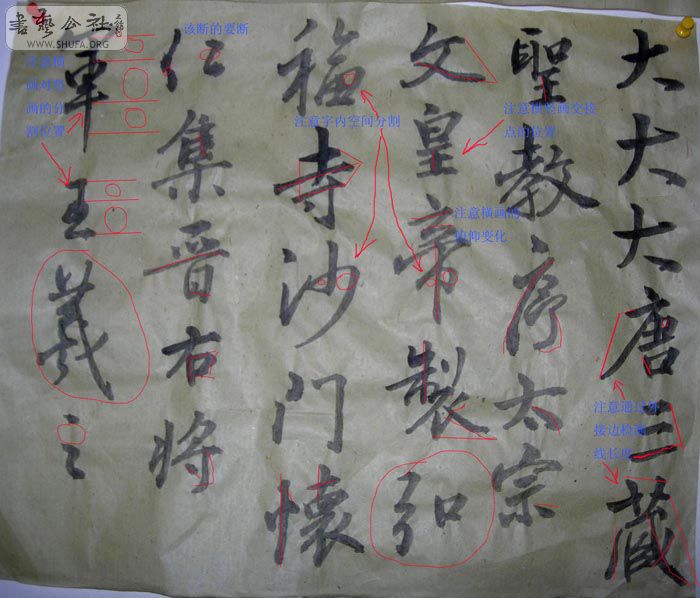 大大大唐三藏
聖教序太宗
文皇帝製弘
福寺沙门懷
仁集晋右將
軍王羲之
書藝公社
WWW.SHUFA.ORG
该断的要断
注意横
画对竖
画的分
割位置
注意字内空间分割
注意横竖画交接
点的位置
注意横画的
俯仰变化
注意通过外
接边检查
线长度